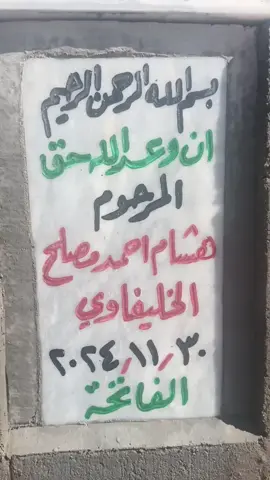 بسم الله الرحمن الرحيم
ان وعد الله حق
المرحوم
هشام احمد مصلح
الخليفاوي
٢٠٢٤/١١/٣٠
الفاتحة